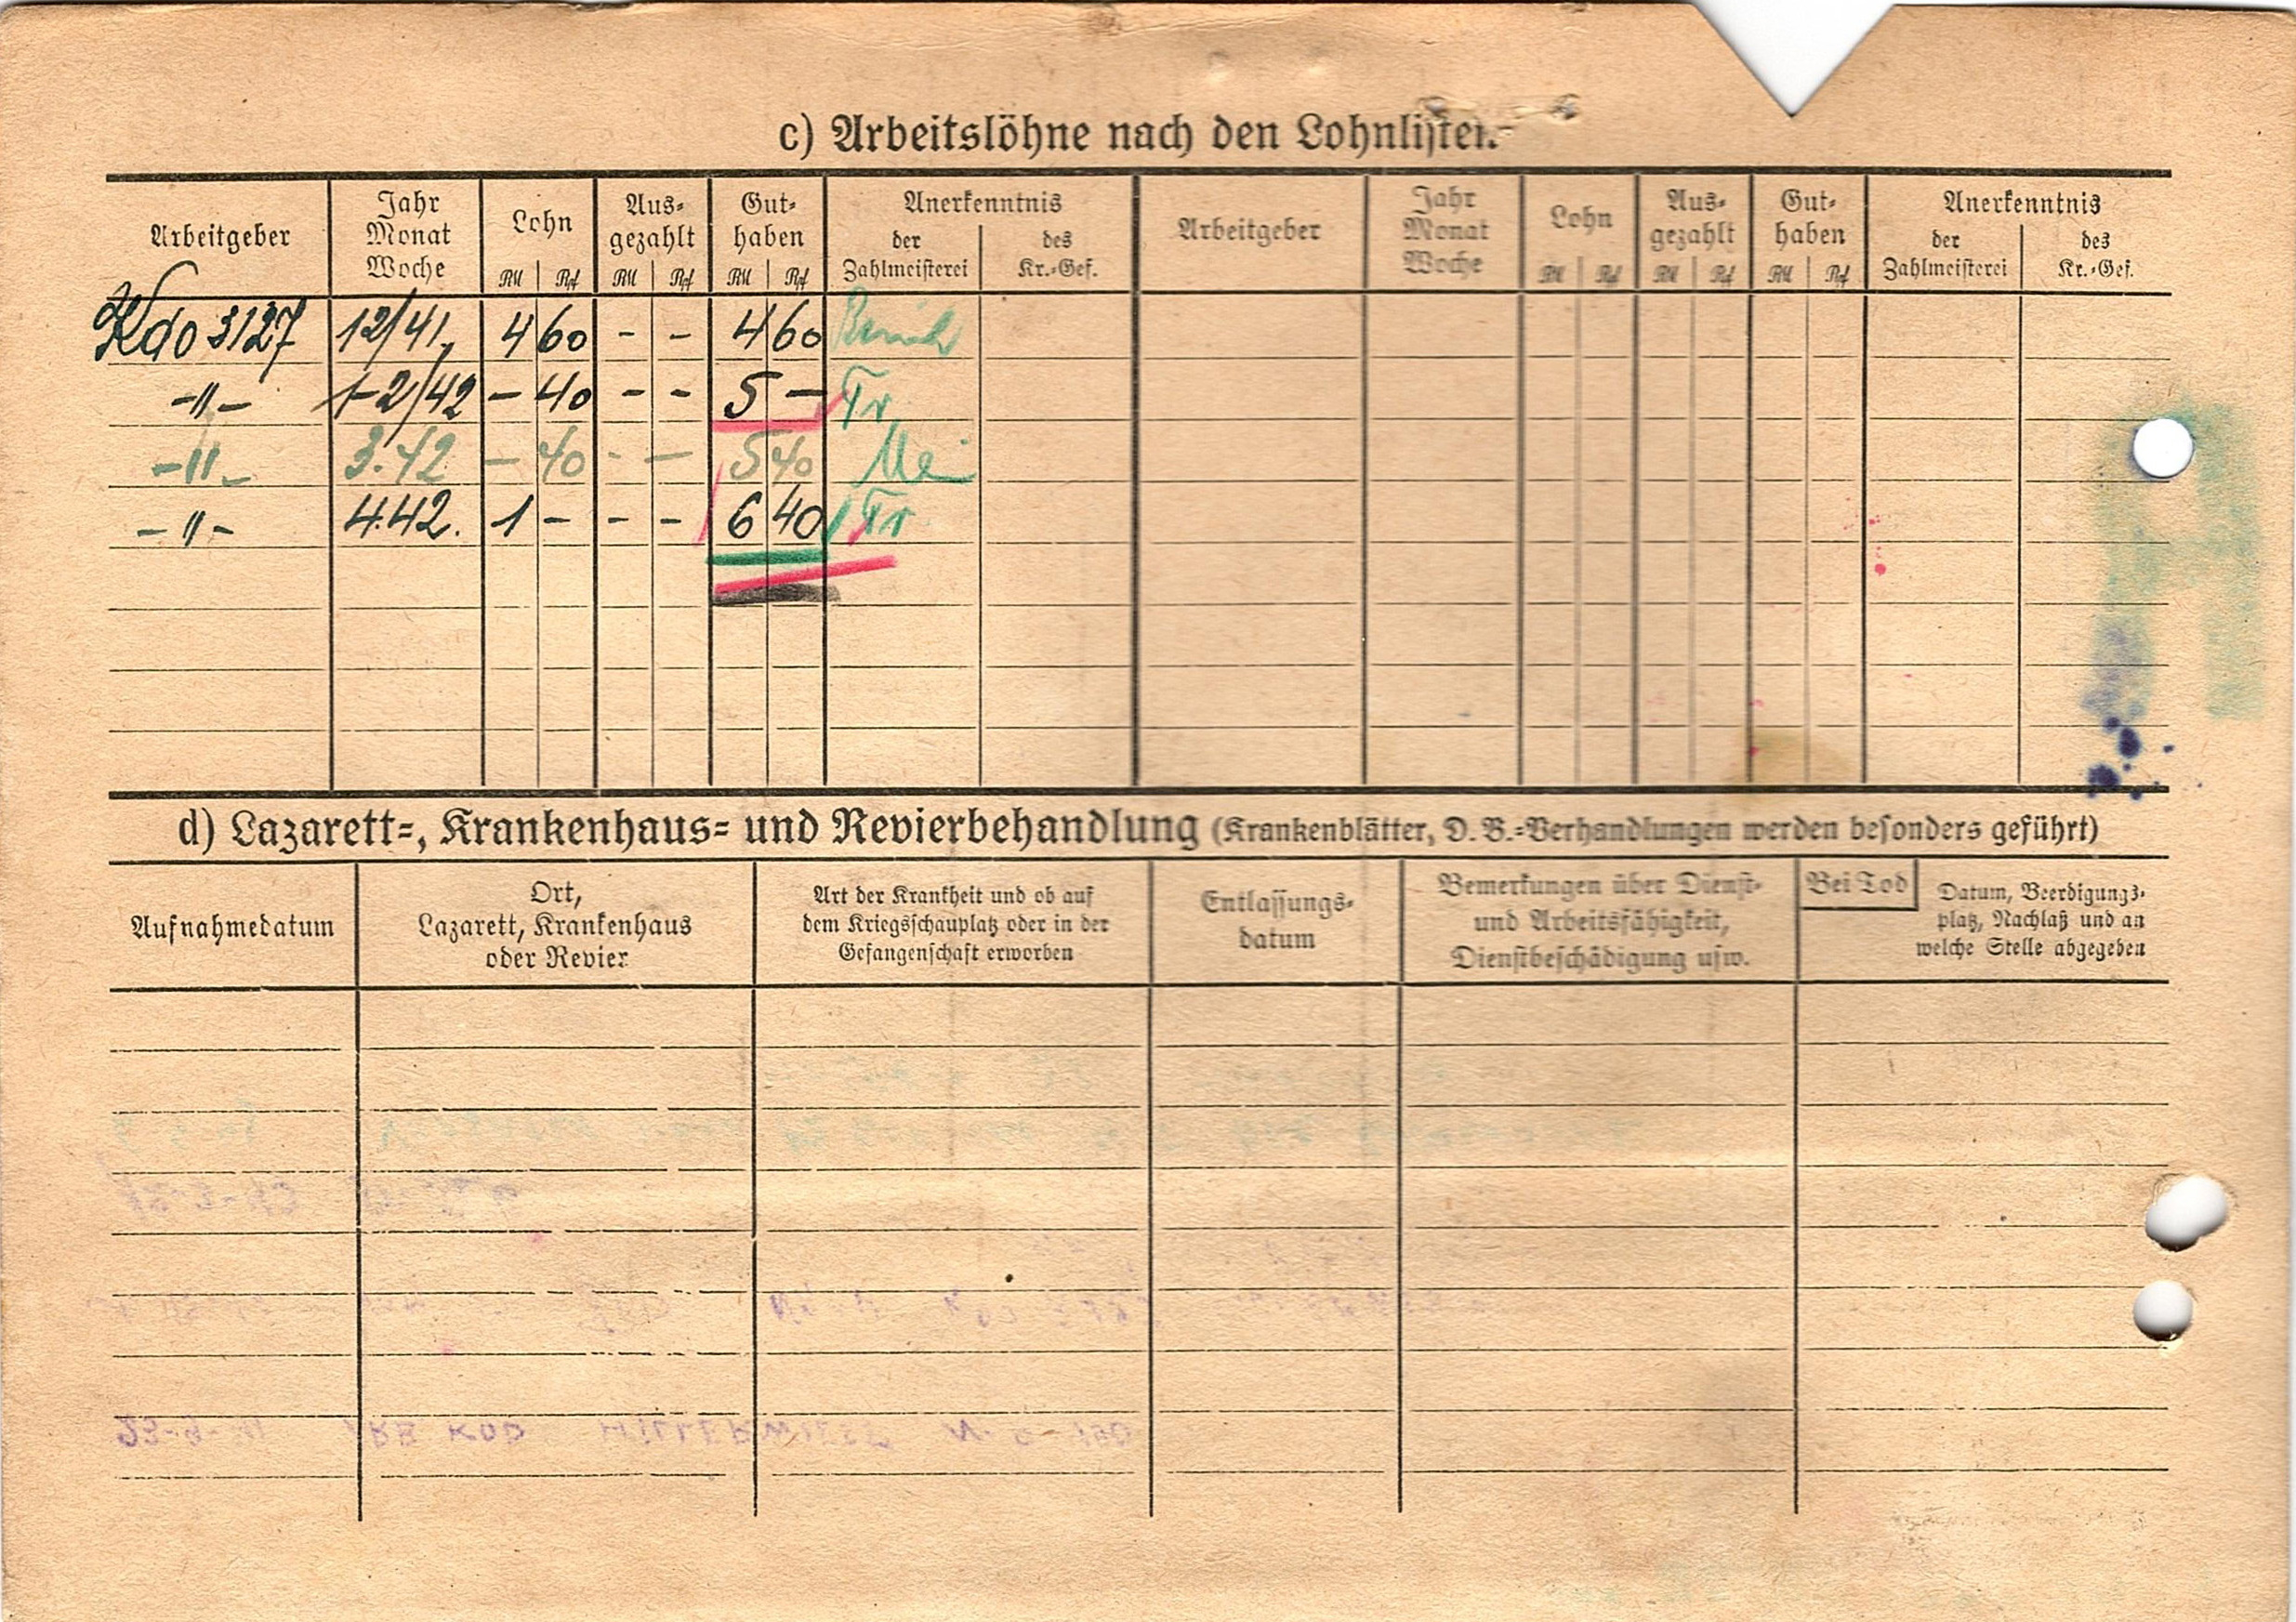 c) Arbeitslöhne nach den Lohnlisten
Arbeitgeber | Jahr Monat Woche | Lohn RM Rpf | Aus-gezahlt RM Rpf | Gut-haben RM Rpf | Anerkenntnis der Zahlmeisterei | des Kr.-Gef. | Arbeitgeber | Jahr Monat Woche | Lohn RM Rpf | Aus-gezahlt RM Rpf | Gut-haben RM Rpf | Anerkenntnis der Zahlmeisterei | des Kr.-Gef.
Kdo 3127 12/41. 4 60 - - 4 60
-"- 1-2/42 - 40 - - 5 - Tr
-"- 3.42 - 40 - - 5 40 Mei
-"- 4.42. 1 - - - 6 40 Tr
d) Lazarett-, Krankenhaus- und Revierbehandlung (Krankenblätter, D. B.-Verhandlungen werden besonders geführt)
Aufnahmedatum | Ort, Lazarett, Krankenhaus oder Revier | Art der Krankheit und ob auf dem Kriegsschauplatz oder in der Gefangenschaft erworben | Entlassungs-datum | Bemerkungen über Dienst- und Arbeitsfähigkeit, Dienstbeschädigung usw. | Bei Tod Datum, Beerdigungs-platz, Nachlaß und an welche Stelle abgegeben